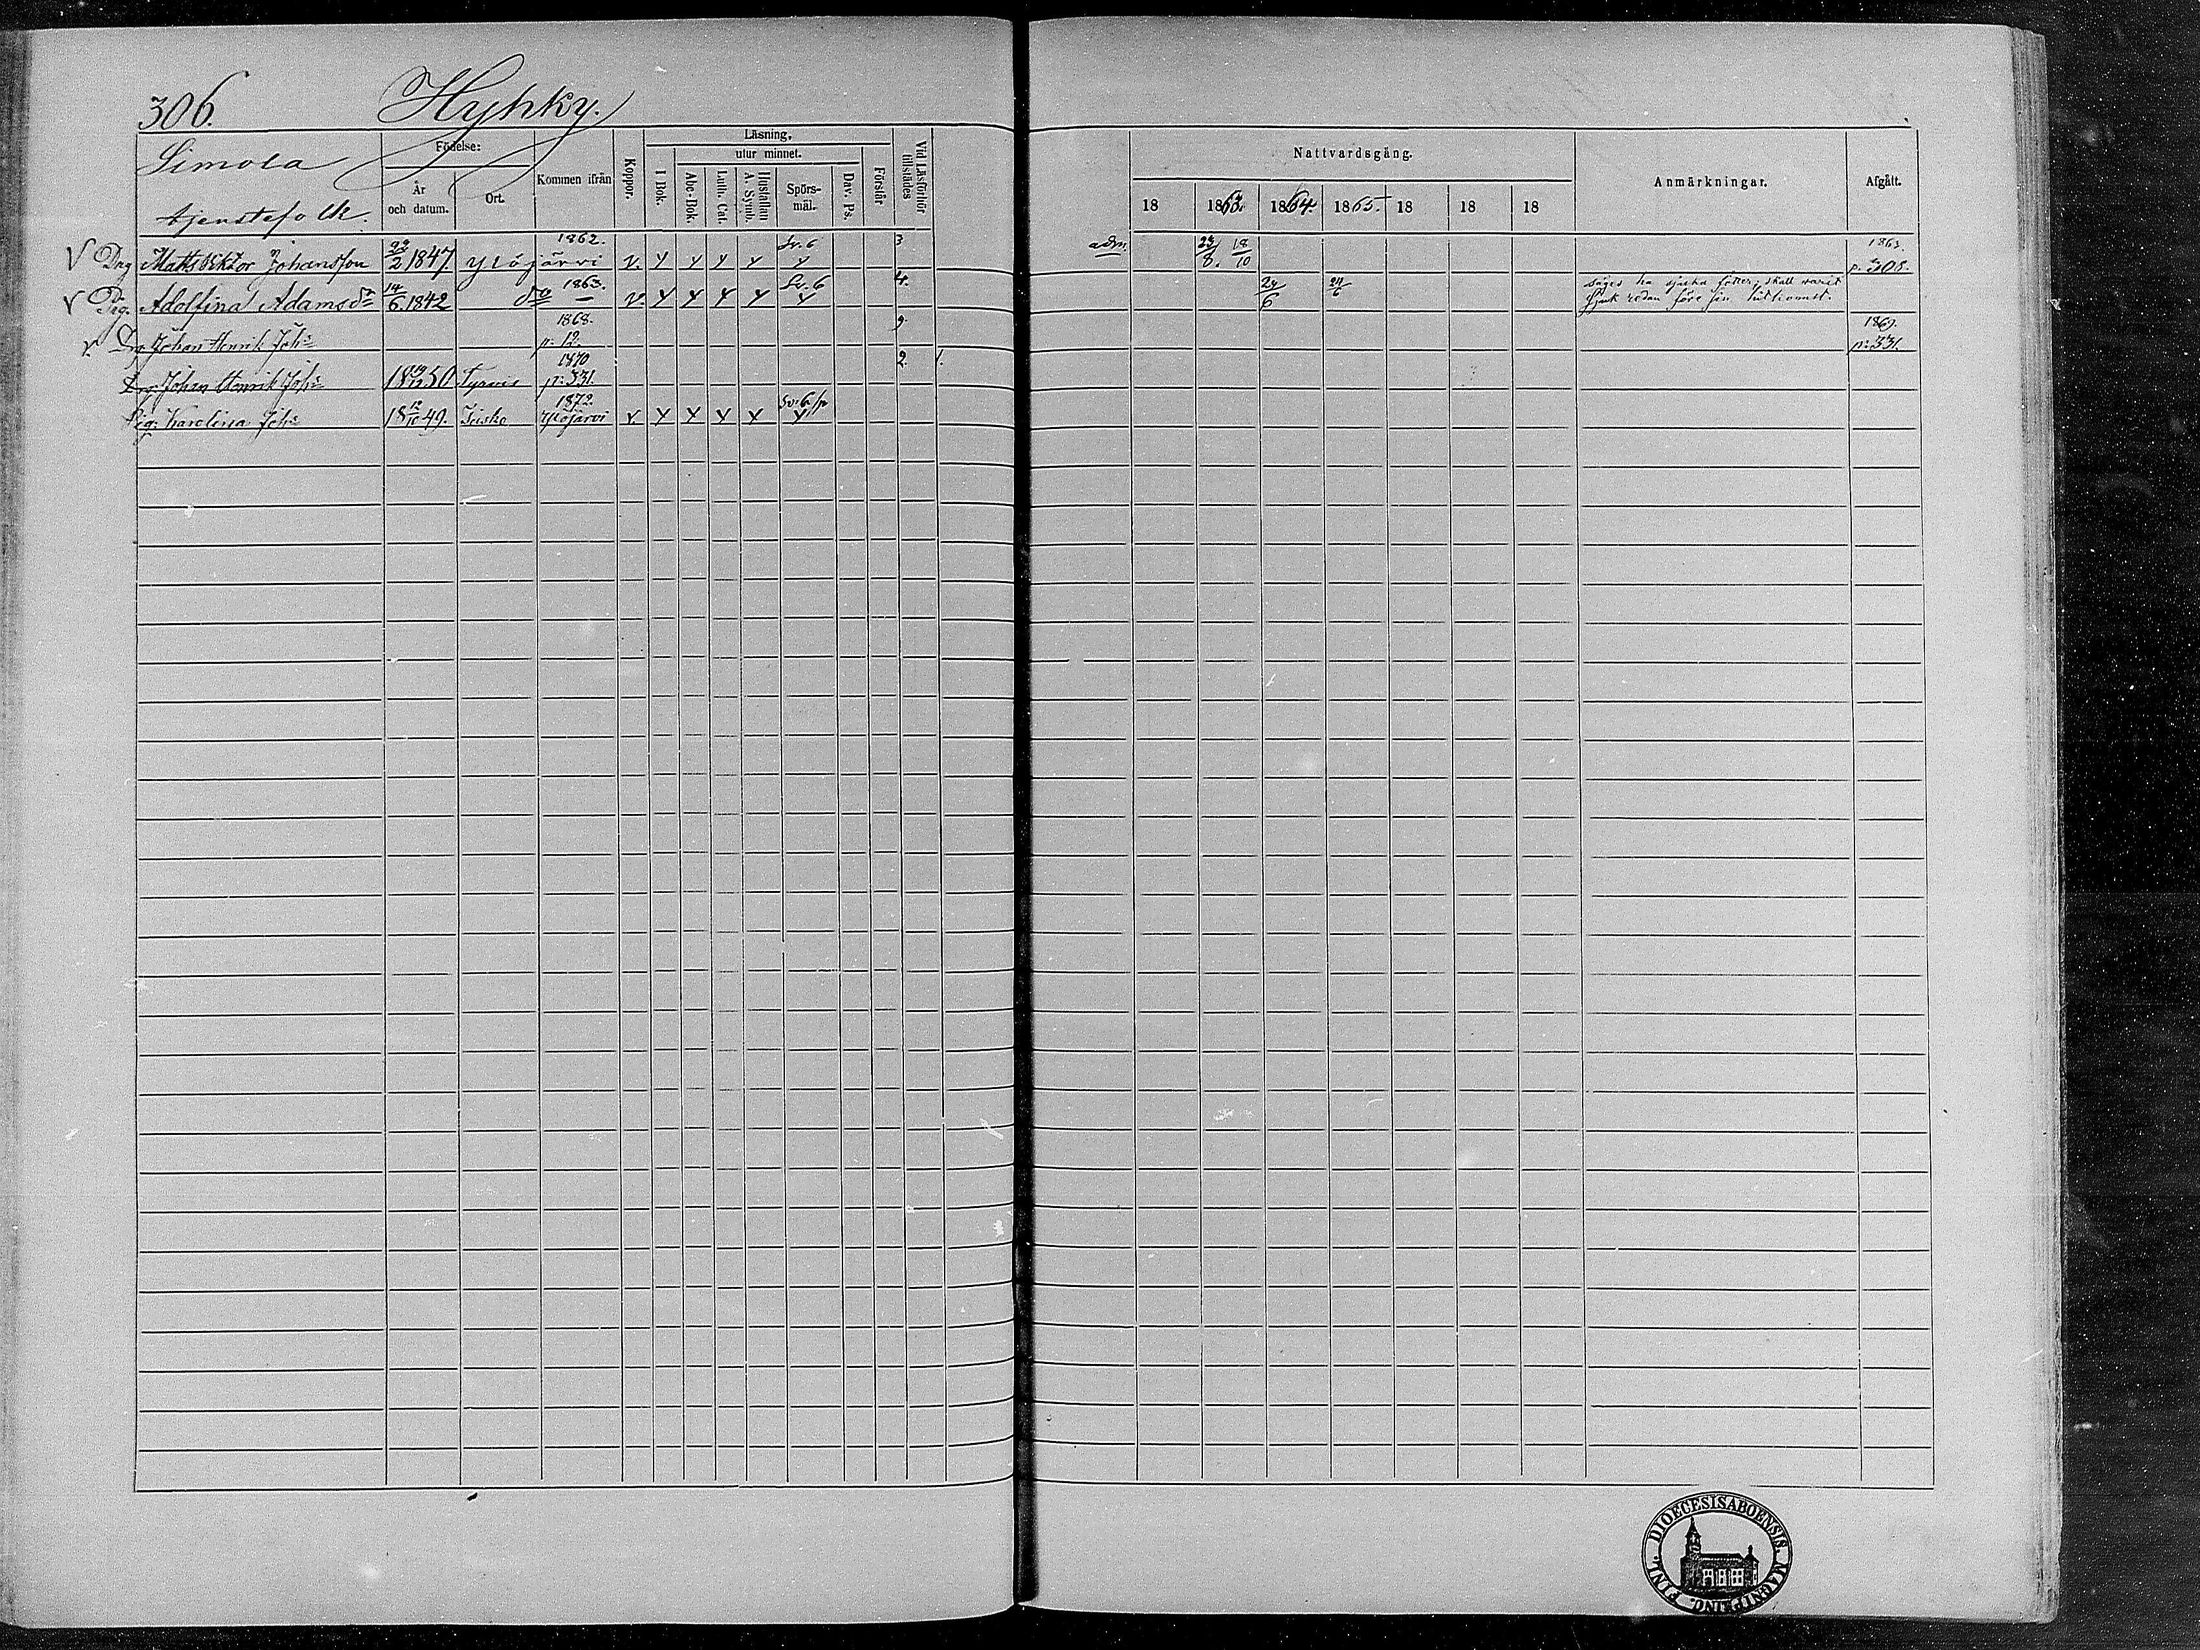 306. Hyhky.
Simola
tjenstefolk.
Födelse:
År och datum.
Ort.
Kommen ifrån
Koppor.
Läsning,
utur minnet.
I Bok.
Abc-Bok.
Luth. Cat.
Hustaflan A. Symb.
Spörs-mål.
Dav. Ps.
Förstår
Vid Läsförhör tillstädes
Nattvardsgång.
18 1863. 1864. 1865. 18 18 18
Anmärkningar.
Afgått.
V Drg Matts Viktor Johansson 22/2 1847 Ylöjärvi 1862. v. Y Y Y Y Sv. 6 Y 3 adm. 23/8. 18/10 1863. p. 308.
V Pig. Adolfina Adamsdr 14/6. 1842 do 1863. — v. Y Y Y Y Sv. 6 Y 4. 24/6 24/6 säges ha sjuka fötter, skall varit
sjuk redan före sin hitkomst.
v. Drg Johan Henrik Joh:n 1868. p. 12. 9. 1869. p: 331.
Drg Johan Henrik Joh:n 1850 Tyrvis 1870 p: 331. 2. 1.
Pig: Karolina Joh: 18 12/10 49. Kisko 1872. Ylöjärvi v. Y Y Y Y Sv. 6 Y
FINL. DIOECESIS ABOENSIS. MAGNI PRINC.